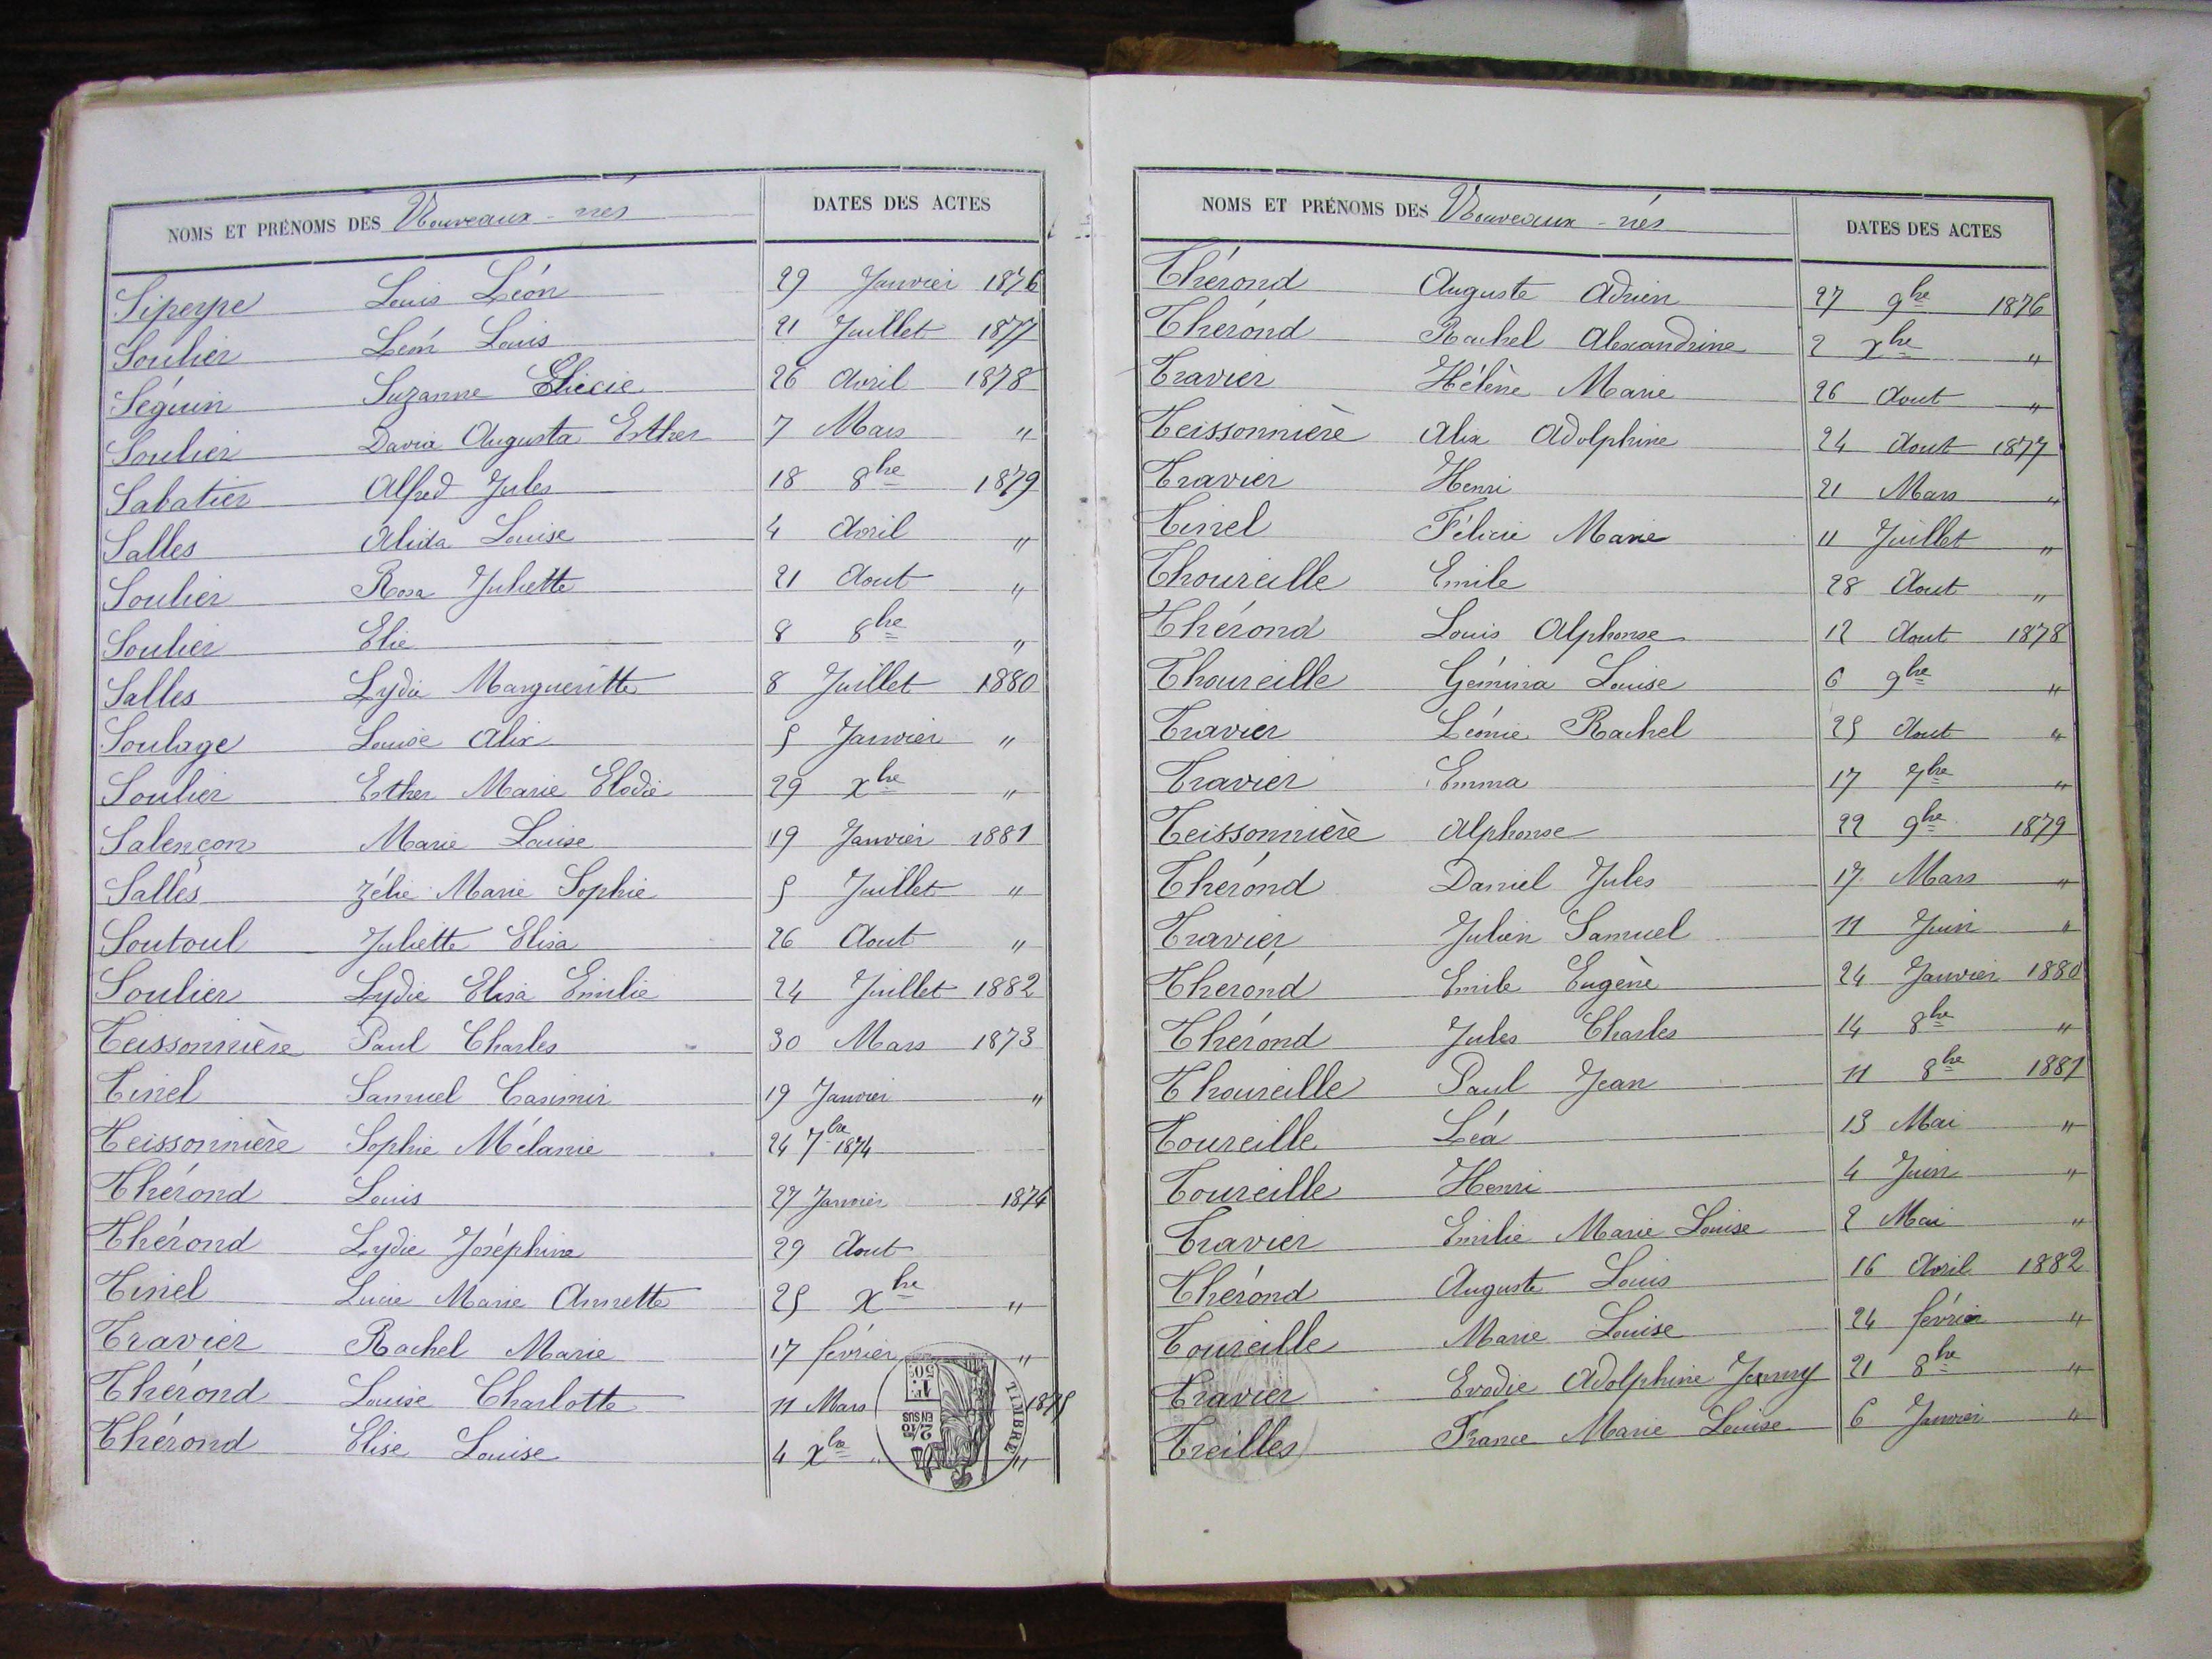 NOMS ET PRÉNOMS DES Nouveaux-nés DATES DES ACTES
Siperpe Louis Léon 29 Janvier 1876
Soulier Léon Louis 21 Juillet 1877
Séguin Suzanne 26 Avril 1878
Soulier Augusta Esther 7 Mars "
Sabatier Alfred Jules 18 8bre 1879
Salles Alida Louise 4 Avril "
Soulier Rosa Juliette 21 Aout "
Soulier Elie 8 8bre "
Salles Lydie Margueritte 8 Juillet 1880
Soulage Louise Alix 5 Janvier "
Soulier Esther Marie Elodie 29 xbre "
Salençon Marie Louise 19 Janvier 1881
Salles Zélie Marie Sophie 5 Juillet "
Soutoul Juliette Elisa 26 Aout "
Soulier Lydie Elisa Emilie 24 Juillet 1882
Teissonnière Paul Charles 30 Mars 1873
Tinel Samuel Casimir 19 Janvier "
Teissonnière Sophie Mélanie 24 7bre 1874
Thérond Louis 27 Janvier 1874
Thérond Lydie Joséphine 29 Aout
Tinel Lucie Marie Annette 25 Xbre "
Travier Rachel Marie 17 février "
Thérond Louise Charlotte 11 Mars 1875
Thérond Elise Louise 4 Xbre " "
TIMBRE
1F 50c
2/10 EN SUS
NOMS ET PRÉNOMS DES Nouveaux-nés DATES DES ACTES
Thérond Auguste Adrien 27 9bre 1876
Thérond Rachel Alexandrine 2 xbre "
Travier Hélène Marie 26 Aout "
Teissonnière Alix Adolphine 24 Aout 1877
Travier Henri 21 Mars "
Tinel Félicie Marie 11 Juillet "
Thoureille Emile 28 Aout "
Thérond Louis Alphonse 12 Aout 1878
Thoureille Gémina Louise 6 9bre "
Travier Léonie Rachel 25 Aout "
Travier Emma 17 7bre "
Teissonnière Alphonse 22 9bre 1879
Thérond Daniel Jules 17 Mars "
Travier Julien Samuel 11 Juin "
Thérond Emile Eugène 24 Janvier 1880
Thérond Jules Charles 14 8bre "
Thoureille Paul Jean 11 8bre 1881
Toureille Léa 13 Mai "
Toureille Henri 4 Juin "
Travier Emilie Marie Louise 2 Mai "
Thérond Auguste Louis 16 Avril 1882
Toureille Marie Louise 24 février "
Travier Evodie Adolphine Jenny 21 8bre "
Treilles France Marie Louise 6 Janvier "